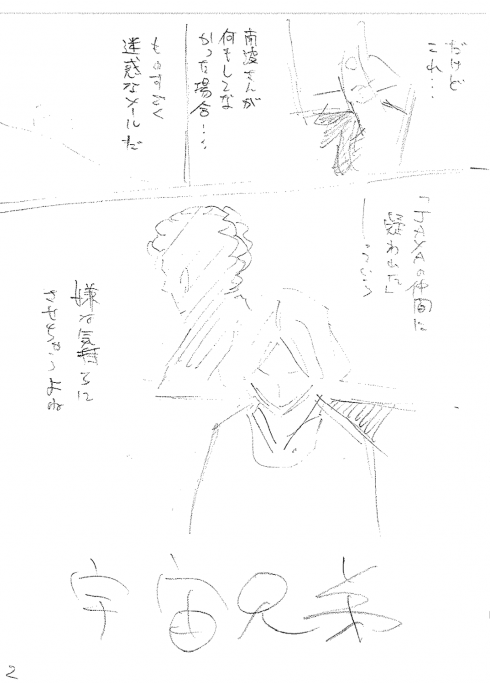 だけど
これ…
南波さんが
何もしてな
かった場合…
ものすごく
迷惑なメールだ
「JAXAの仲間に
疑われた」
って
嫌な気持ちに
させちゃうよね
宇宙兄弟
2